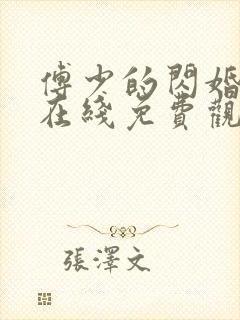 傅少的閃婚
在綫免費觀
張澤文